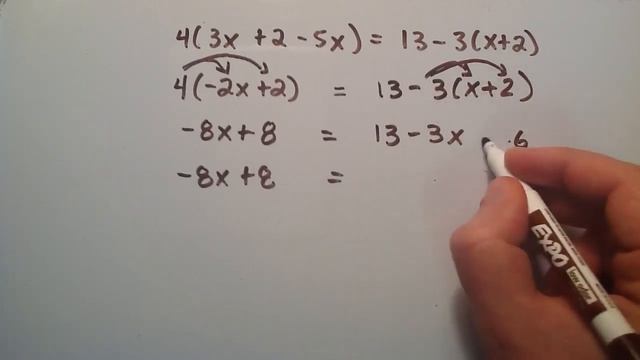 4(3x +2 -5x) = 13 -3(x+2)
4(-2x+2) = 13 - 3(x+2)
-8x+8 = 13 - 3x 6
-8x +8 =
EXPO
low odor